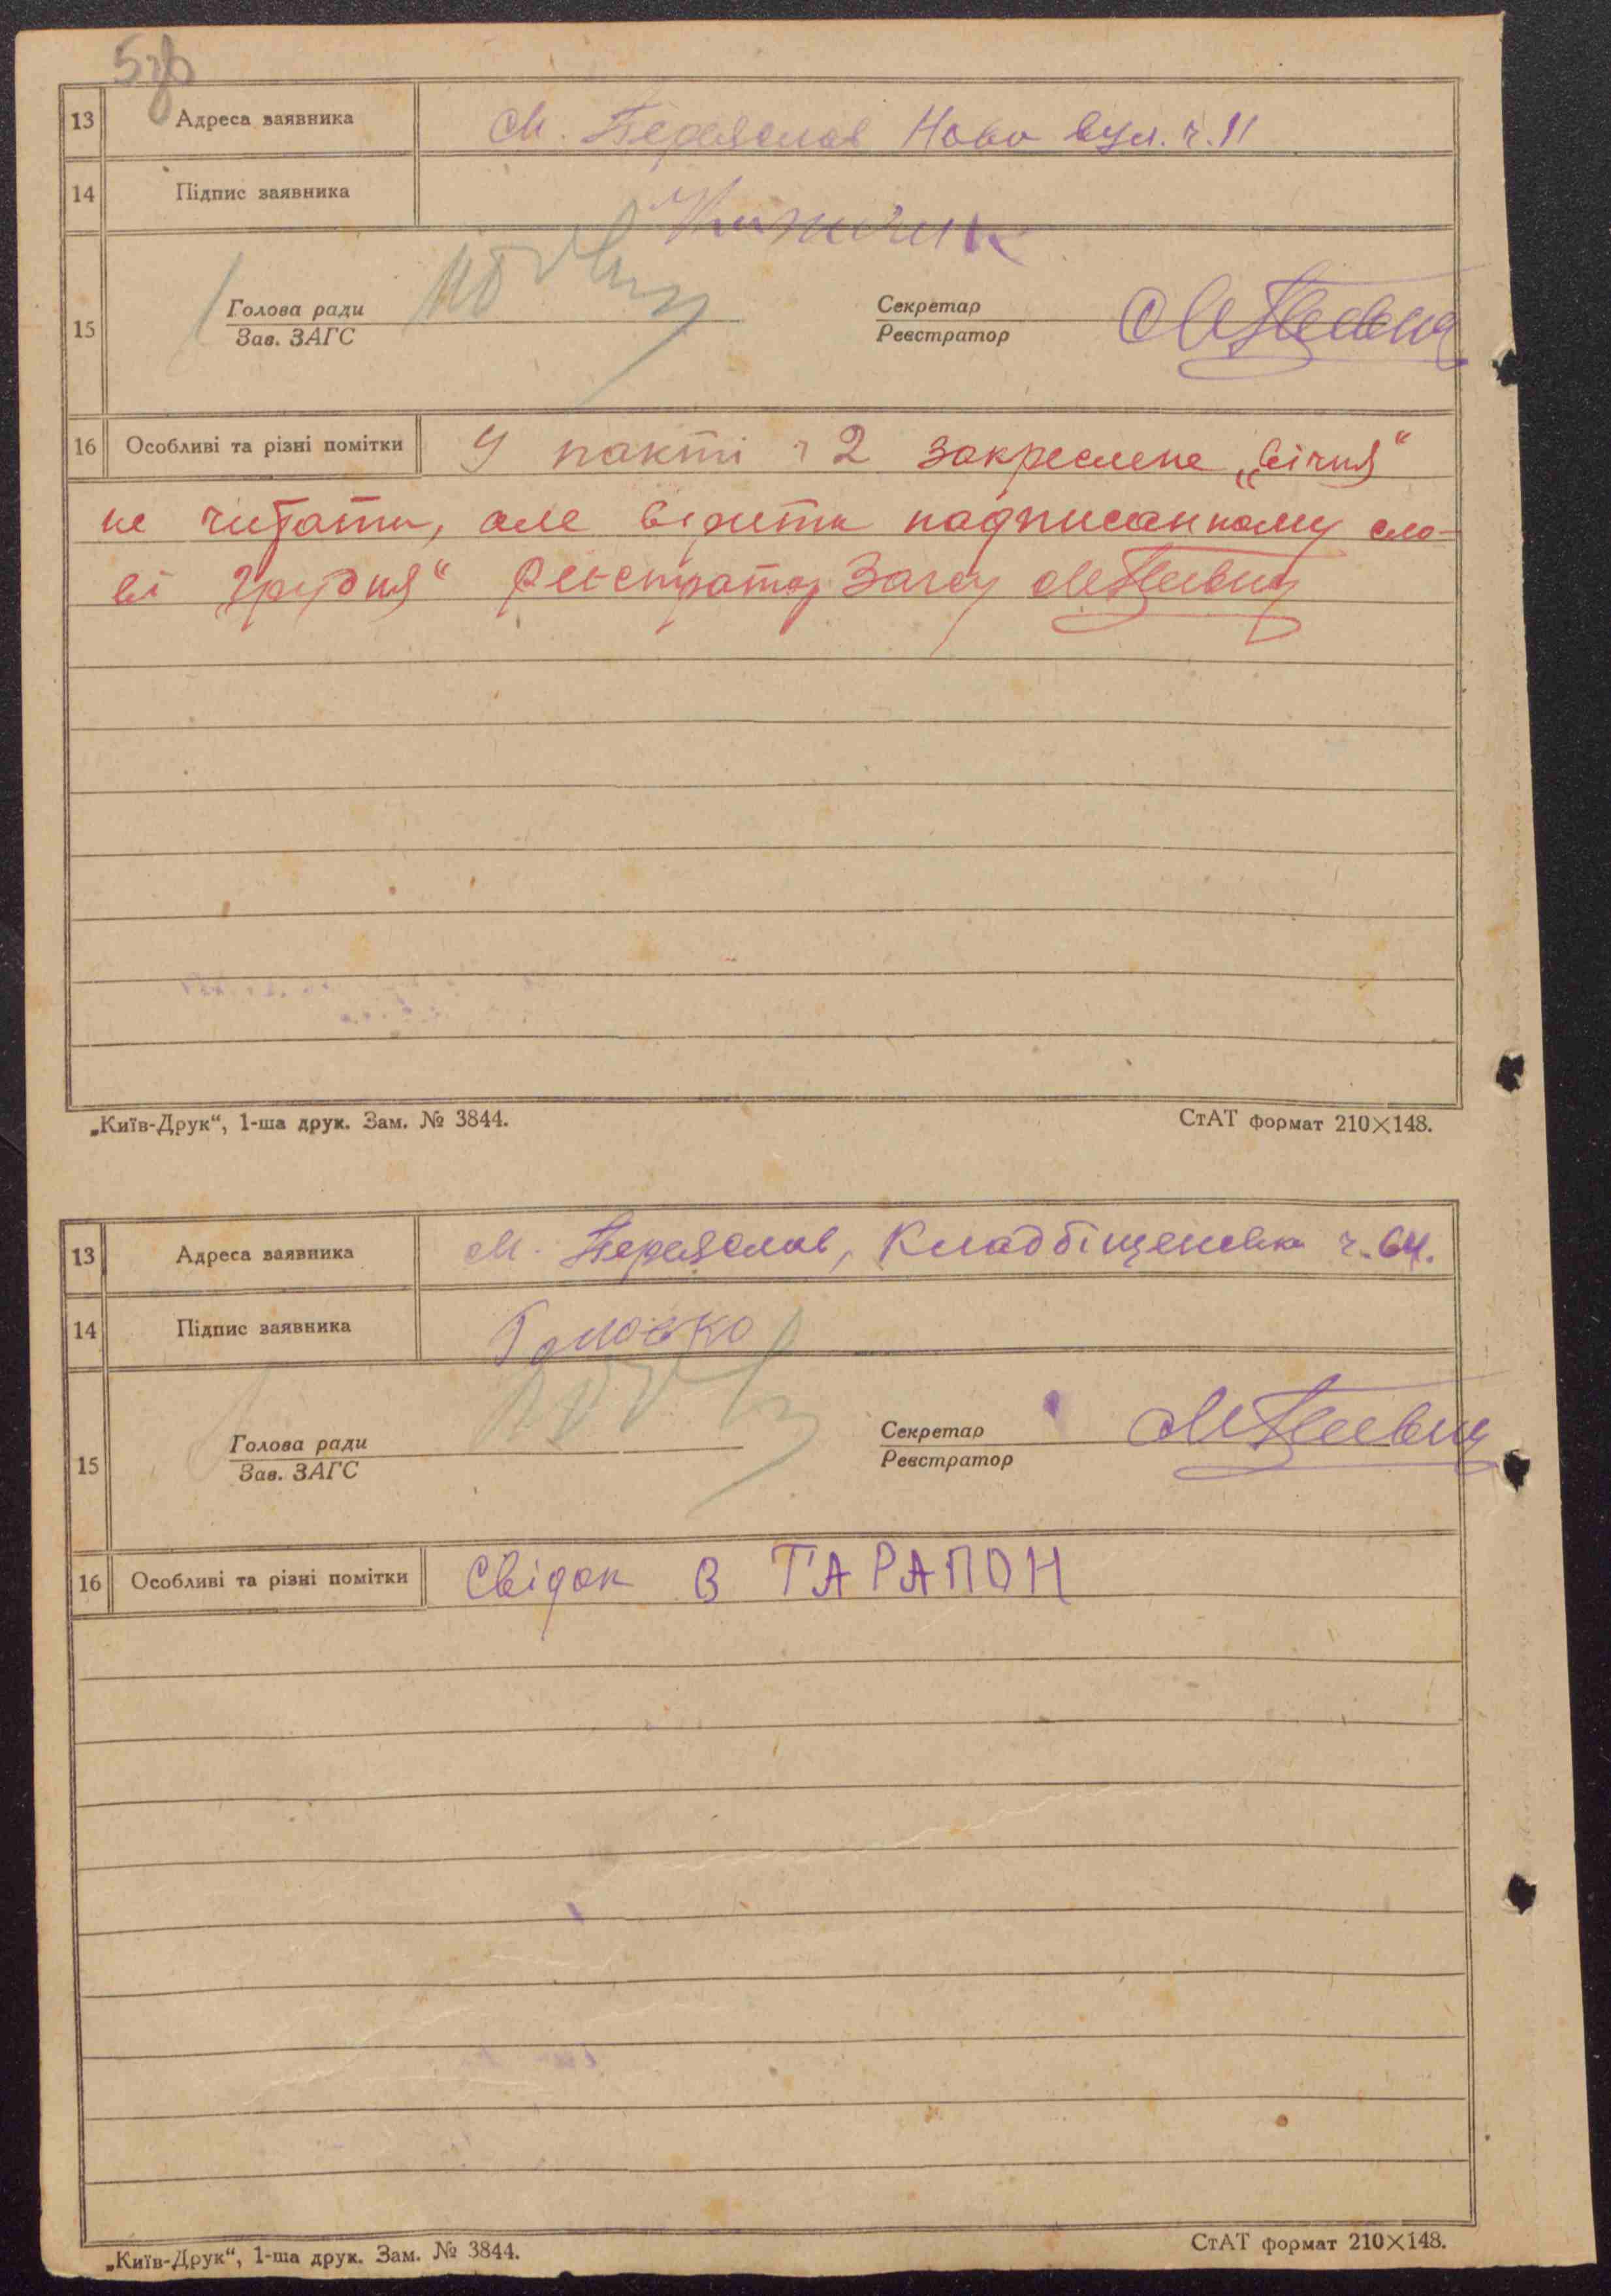 5зв
13 Адреса заявника м. Переяслав Нова вул. ч. 11
14 Підпис заявника
Голова ради Секретар
15
Зав. ЗАГС Реєстратор
16 Особливі та різні помітки У пакті ч 2 закреслене „січня“
не читати, але вірити надписанному сло-
ві „грудня“ Реєстратор Загсу
„Київ-Друк“, 1-ша друк. Зам. № 3844. СтАТ формат 210×148.
13 Адреса заявника м. Переяслав, Кладбіщенська ч. 64.
14 Підпис заявника
Голова ради Секретар
15
Зав. ЗАГС Реєстратор
16 Особливі та різні помітки Свідок В ТАРАПОН
„Київ-Друк“, 1-ша друк. Зам. № 3844. СтАТ формат 210×148.